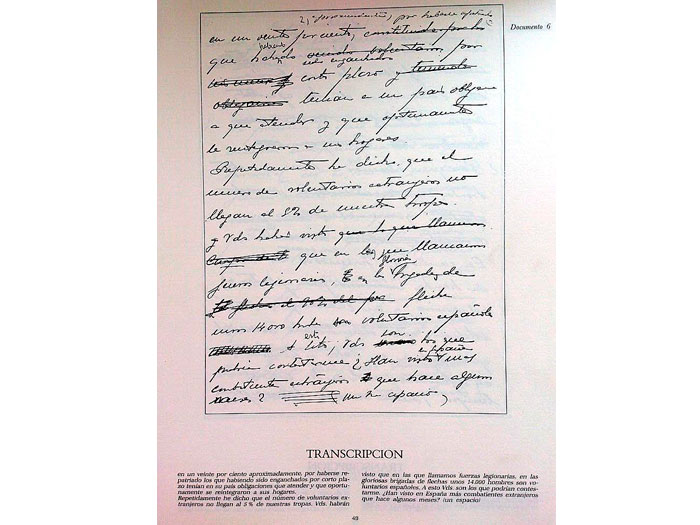 2, aproximadamente, por haberse
Documento 6
en un veinte por ciento, constituido por los
habiendo
que
sido enganchados
por
corto plazo y
obligaciones tenian en su pais obligaciones
a que atender y que oportunamente
se reintegraron a sus hogares.
Repetidamente he dicho, que el
numero de voluntarios extranjeros no
llegan al 5% de nuestras tropas.
y Vds habrán visto que lo que llamamos
que en las que llamamos
gloriosas
fuerzas legionarias, en las Brigadas de
flechas
unos 14000 son voluntarios españoles
esto
son
A Vds los que
en España
podrian contestarme ¿Han visto mas
combatientes extranjeros que hace algunos
meses?
TRANSCRIPCION
en un veinte por ciento aproximadamente, por haberse re-
patriado los que habiendo sido enganchados por corto pla-
zo tenían en su país obligaciones que atender y que oportu-
namente se reintegraron a sus hogares.
Repetidamente he dicho que el número de voluntarios ex-
tranjeros no llegan al 5 % de nuestras tropas. Vds. habrán
visto que en las que llamamos fuerzas legionarias, en las
gloriosas brigadas de flechas unos 14.000 hombres son vo-
luntarios españoles. A esto Vds. son los que podrían contes-
tarme. ¿Han visto en España más combatientes extranjeros
que hace algunos meses? (un espacio)
49